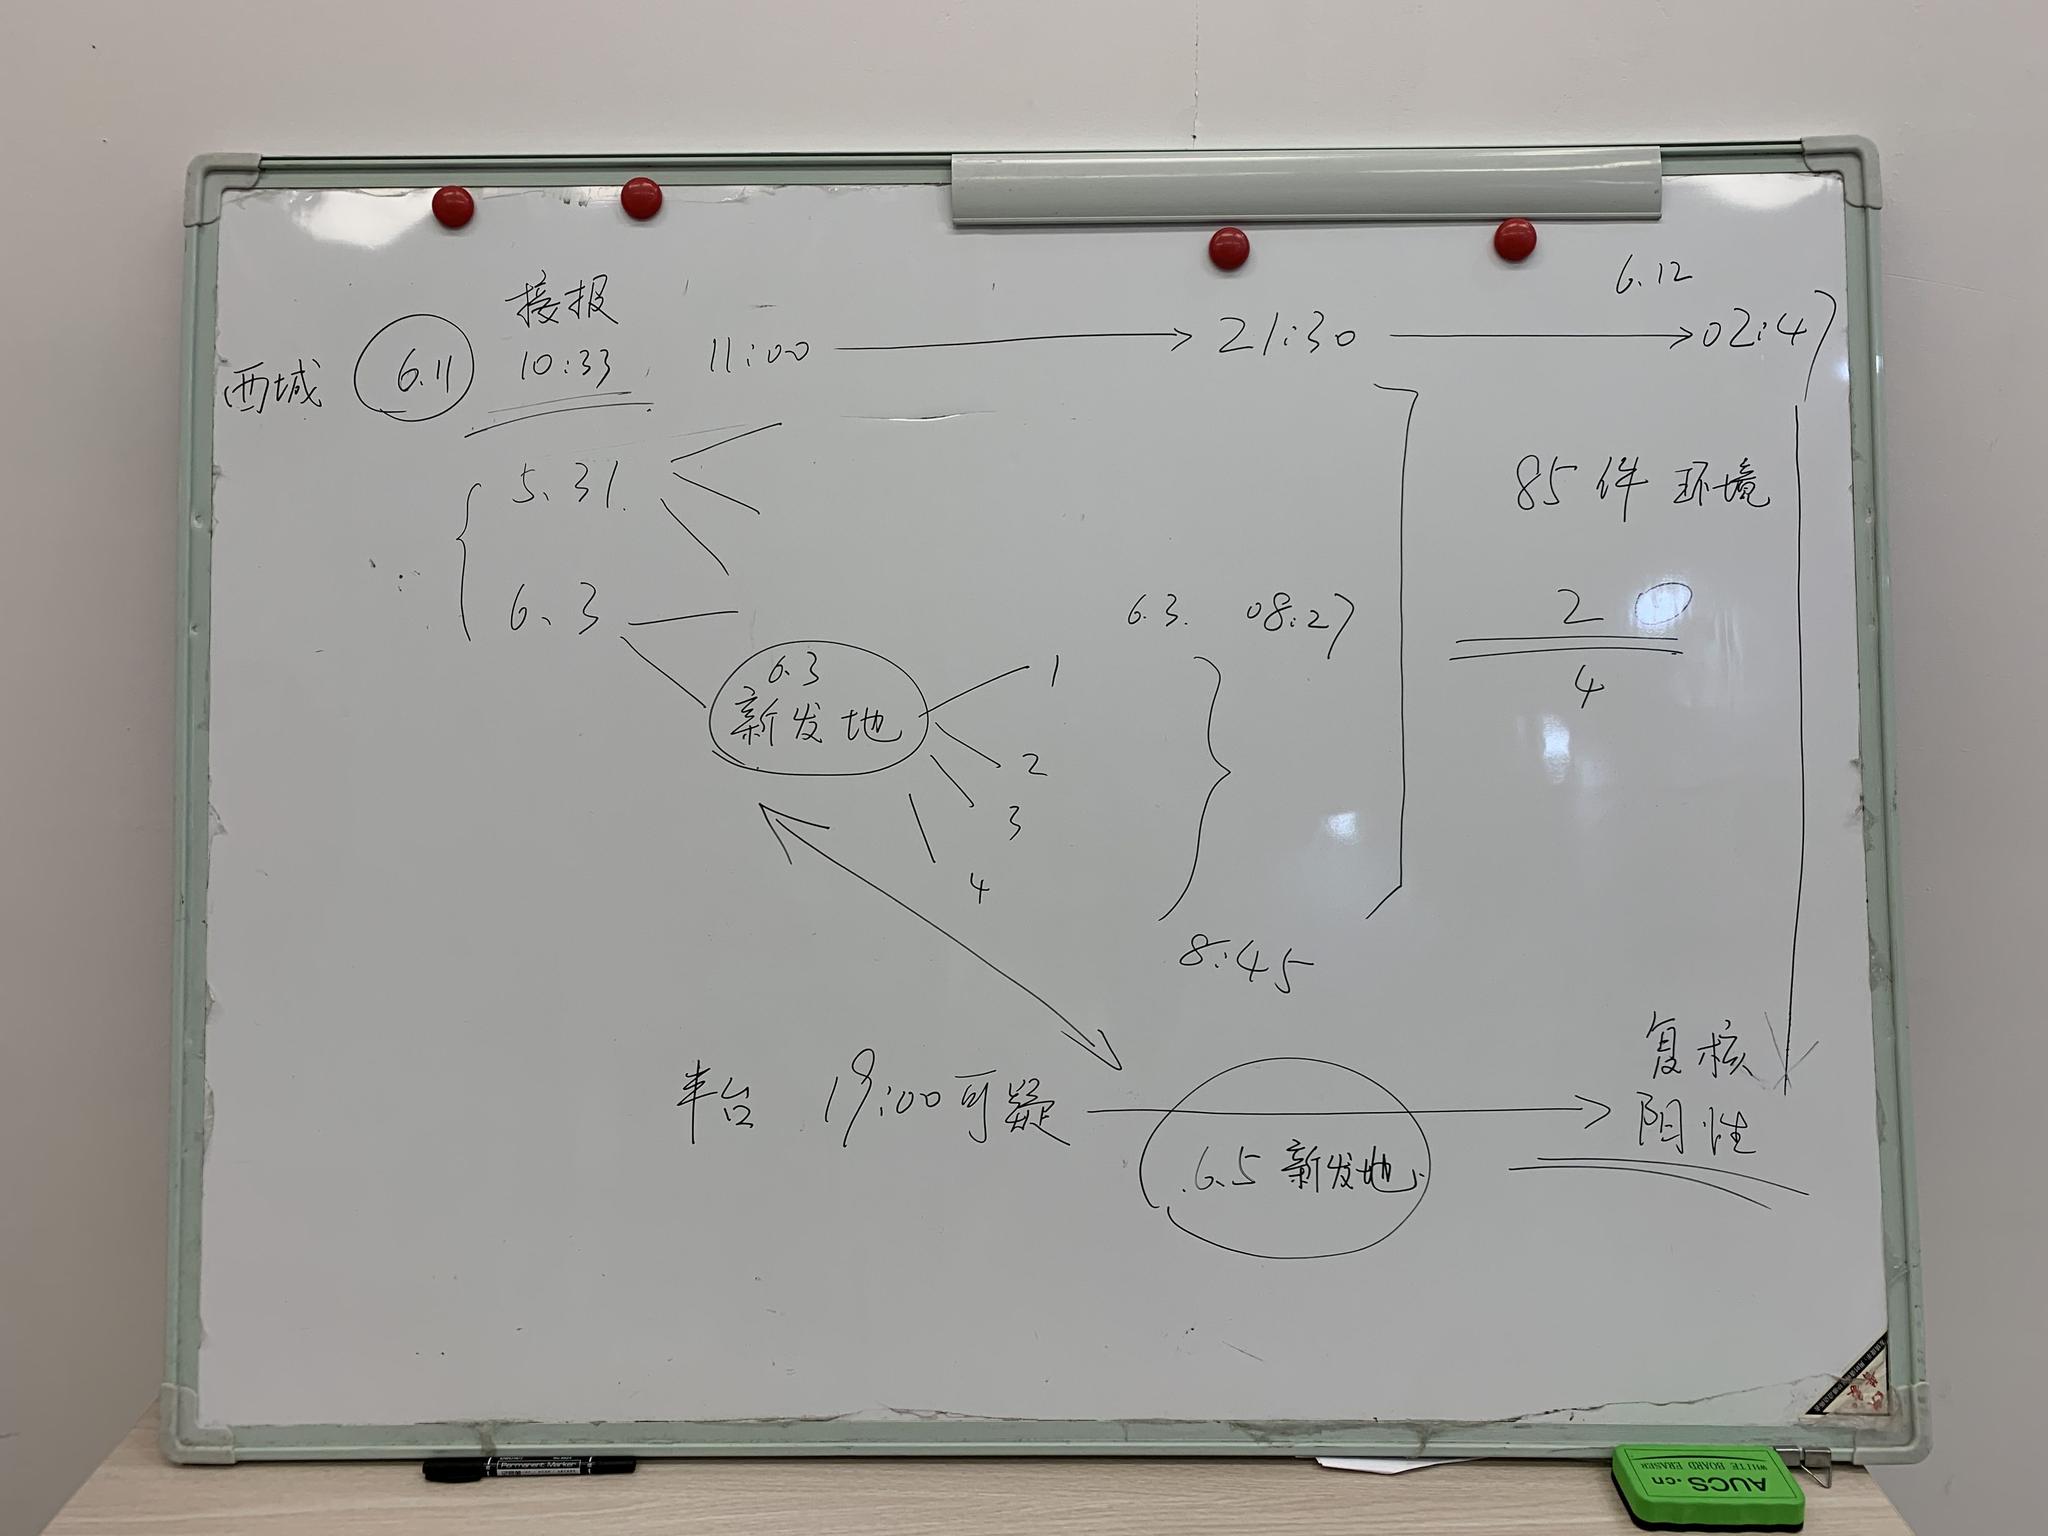 接报
6.12
西城 6.11 10:33 11:00 21:30 02:47
5.31
85件 环境
6.3
6.3. 08:27
2
6.3
新发地
1
4
2
3
4
8:45
复核
丰台 19:00可疑
阳性
6.5 新发地
Permanent Marker
AUCS.cn
WHITE BOARD ERASER